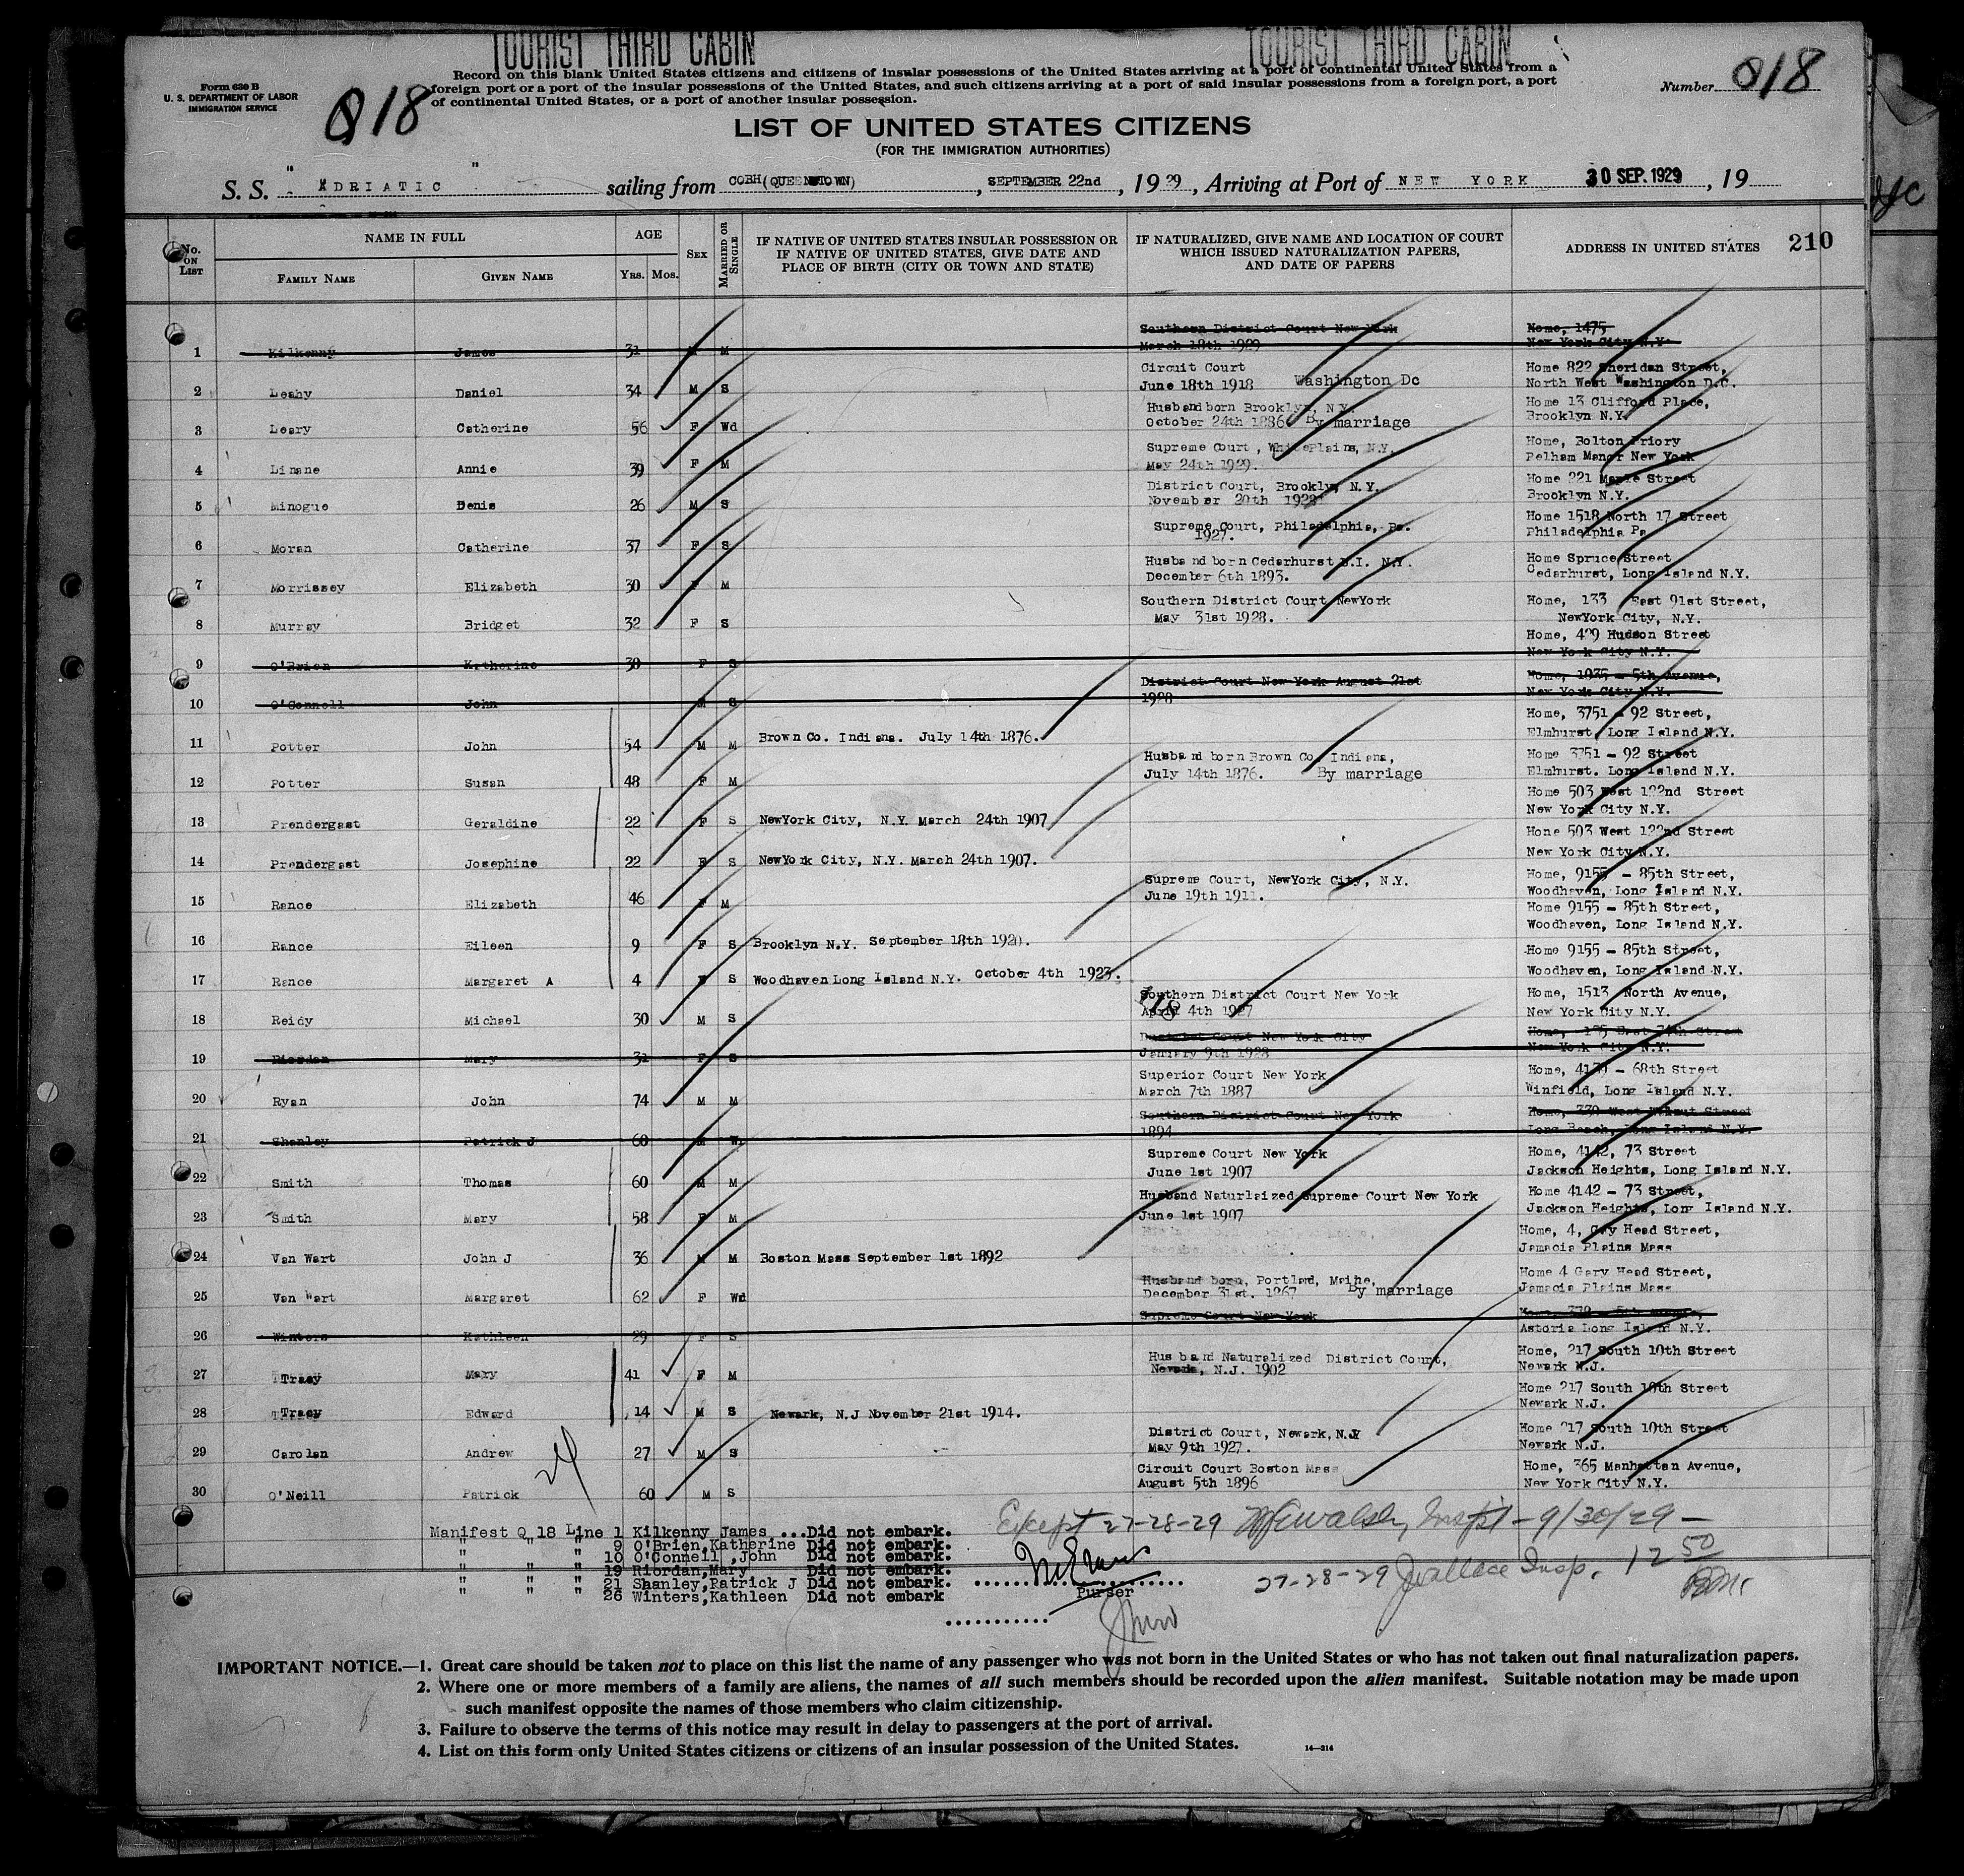 TOURIST THIRD CABIN TOURIST THIRD CABIN
Form 630 B
U. S. DEPARTMENT OF LABOR
IMMIGRATION SERVICE
Q18
Record on this blank United States citizens and citizens of insular possessions of the United States arriving at a port of continental United States from a
foreign port or a port of the insular possessions of the United States, and such citizens arriving at a port of said insular possessions from a foreign port, a port
of continental United States, or a port of another insular possession.
Number Q18
LIST OF UNITED STATES CITIZENS
(FOR THE IMMIGRATION AUTHORITIES)
S. S. "ADRIATIC" sailing from COBH(QUEENSTOWN), SEPTEMBER 22nd, 1929, Arriving at Port of NEW YORK 30 SEP. 1929, 19
No. ON LIST
NAME IN FULL
FAMILY NAME GIVEN NAME
AGE
YRS. MOS.
SEX
MARRIED OR SINGLE
IF NATIVE OF UNITED STATES INSULAR POSSESSION OR
IF NATIVE OF UNITED STATES, GIVE DATE AND
PLACE OF BIRTH (CITY OR TOWN AND STATE)
IF NATURALIZED, GIVE NAME AND LOCATION OF COURT
WHICH ISSUED NATURALIZATION PAPERS,
AND DATE OF PAPERS
ADDRESS IN UNITED STATES 210
Southern District Court New York Home, 1475
1 Kilkenny James 31 M M March 18th 1929 New York City N.Y.
Circuit Court Home 822 Sheridan Street,
2 Leahy Daniel 34 M S June 18th 1918 Washington Dc North West Washington D.C.
Husband born Brooklyn, N.Y. Home 13 Clifford Place,
3 Leary Catherine 56 F Wd October 24th 1886 By marriage Brooklyn N.Y.
Supreme Court, White Plains, N.Y. Home, Bolton Priory
4 Linane Annie 39 F M May 24th 1929. Pelham Manor New York
District Court, Brooklyn, N.Y. Home 221 Maple Street
5 Minogue Denis 26 M S November 20th 1928 Brooklyn N.Y.
Supreme Court, Philadelphia, Pa. Home 1518 North 17 Street
6 Moran Catherine 37 F S 1927. Philadelphia Pa
Husband born Cedarhurst L.I. N.Y. Home Spruce Street
7 Morrissey Elizabeth 30 F M December 6th 1893. Cedarhurst, Long Island N.Y.
Southern District Court NewYork Home, 133 East 91st Street,
8 Murray Bridget 32 F S May 31st 1928. NewYork City, N.Y.
Home, 429 Hudson Street
9 O'Brien Katherine 30 F S New York City N.Y.
District Court New York August 21st Home, 1935 - 5th Avenue,
10 O'Connell John M S 1928 New York City N.Y.
Home, 3751 - 92 Street,
11 Potter John 54 M M Brown Co. Indiana. July 14th 1876. Elmhurst, Long Island N.Y.
Husband born Brown Co. Indiana, Home 3751 - 92 Street
12 Potter Susan 48 F M July 14th 1876. By marriage Elmhurst. Long Island N.Y.
Home 503 West 122nd Street
13 Prendergast Geraldine 22 F S NewYork City, N.Y. March 24th 1907 New York City N.Y.
Hone 503 West 122nd Street
14 Prendergast Josephine 22 F S NewYork City, N.Y. March 24th 1907. New York City N.Y.
Supreme Court, NewYork City, N.Y. Home, 9155 - 85th Street,
15 Rance Elizabeth 46 F M June 19th 1911. Woodhaven, Long Island N.Y.
Home 9155 - 85th Street,
16 Rance Eileen 9 F S Brooklyn N.Y. September 18th 1920. Woodhaven, Long Island N.Y.
Home 9155 - 85th Street,
17 Rance Margaret A 4 F S Woodhaven Long Island N.Y. October 4th 1923. Woodhaven, Long Island N.Y.
Southern District Court New York Home, 1513 North Avenue,
18 Reidy Michael 30 M S April 4th 1927 New York City N.Y.
District Court New York City Home, 135 East 74th Street
19 Riordan Mary 31 F S January 9th 1928 New York City N.Y.
Superior Court New York Home, 4130 - 68th Street
20 Ryan John 74 M M March 7th 1887 Winfield, Long Island N.Y.
Southern District Court New York Home, 330 West Walnut Street
21 Shanley Patrick J 60 M W. 1894 Long Beach, Long Island N.Y.
Supreme Court New York Home, 4142, 73 Street
22 Smith Thomas 60 M M June 1st 1907 Jackson Heights, Long Island N.Y.
Husband Naturlaized Supreme Court New York Home 4142 - 73 Street,
23 Smith Mary 58 F M June 1st 1907 Jackson Heights, Long Island N.Y.
Home, 4, Gay Head Street,
24 Van Wart John J 36 M M Boston Mass September 1st 1892 Jamacia Plains Mass
Husband born, Portland, Maine, Home 4 Gary Head Street,
25 Van Wart Margaret 62 F Wd December 31st. 1867 By marriage Jamacia Plains Mass
Supreme Court New York
26 Winters Kathleen 29 F S Astoria Long Island N.Y.
Husband Naturalized District Court, Home, 217 South 10th Street
27 Tracy Mary 41 F M Newark, N.J. 1902 Newark N.J.
Home 217 South 10th Street
28 Tracy Edward 14 M S Newark, N.J November 21st 1914. Newark N.J.
District Court, Newark, N.J Home 217 South 10th Street
29 Carolan Andrew 27 M S May 9th 1927. Newark N.J.
Circuit Court Boston Mass Home, 365 Manhattan Avenue,
30 O'Neill Patrick 60 M S August 5th 1896 New York City N.Y.
24
Manifest Q 18 Line 1 Kilkenny James ...Did not embark.
" " " 9 O'Brien,Katherine Did not embark.
" " " 10 O'Connell ,John Did not embark.
" " " 19 Riordan,Mary Did not embark.
" " " 21 Shanley,Patrick J Did not embark.
" " " 26 Winters,Kathleen Did not embark
Except 27-28-29 Insp't - 9/30/29 -
Purser
27-28-29 JWallace Insp. 12 50
IMPORTANT NOTICE.—1. Great care should be taken not to place on this list the name of any passenger who was not born in the United States or who has not taken out final naturalization papers.
2. Where one or more members of a family are aliens, the names of all such members should be recorded upon the alien manifest. Suitable notation may be made upon
such manifest opposite the names of those members who claim citizenship.
3. Failure to observe the terms of this notice may result in delay to passengers at the port of arrival.
4. List on this form only United States citizens or citizens of an insular possession of the United States.
14—214